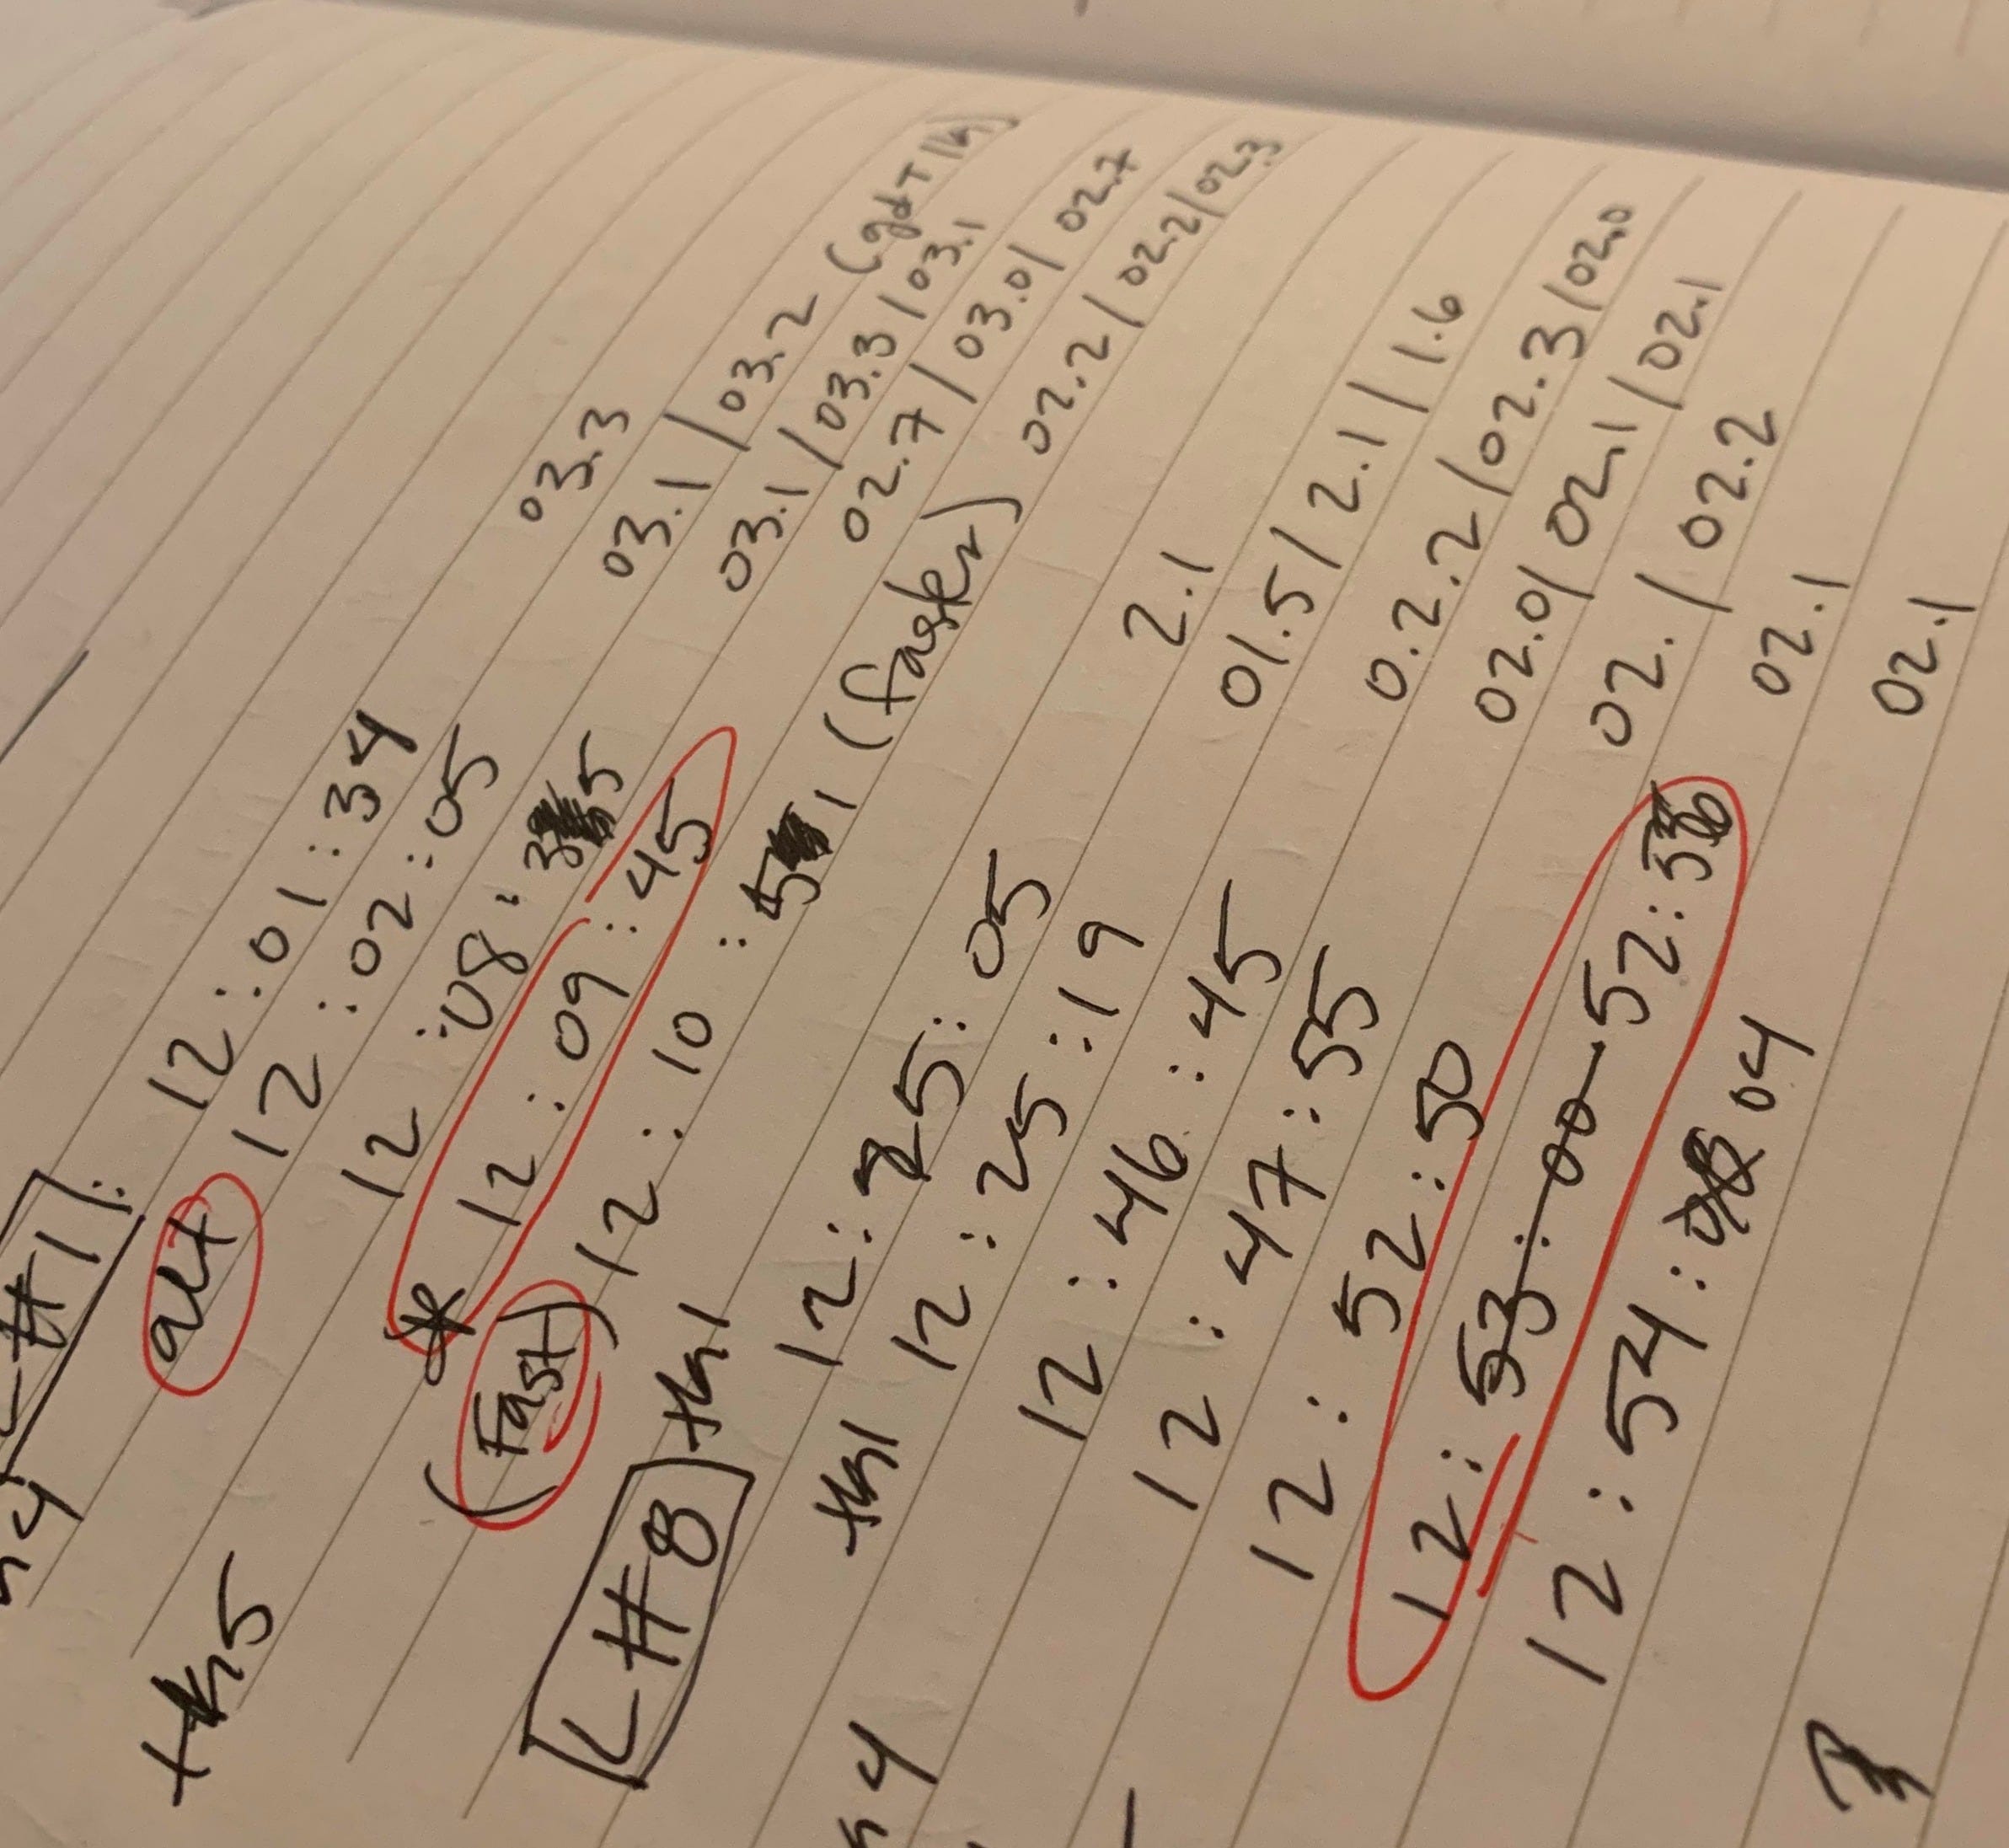 L#1: 12:01:34 03.3
alt 12:02:05 03.1/03.2 (gdt
12:08:35 03.1/03.3/03.1
* 12:09:45 02.7/03.0/02.7
(Fast) 12:10:51 (faster) 02.2/02.2/02.3
L#8 tk1 12:25:05 2.1
tk1 12:25:19 01.5/2.1/1.6
12:46:45 0.2.2/02.3/02.0
12:47:55 02.0/02.1/02.1
12:52:50 02.1/02.2
12:53:00-52:36 02.1
12:54:04 02.1
tk5